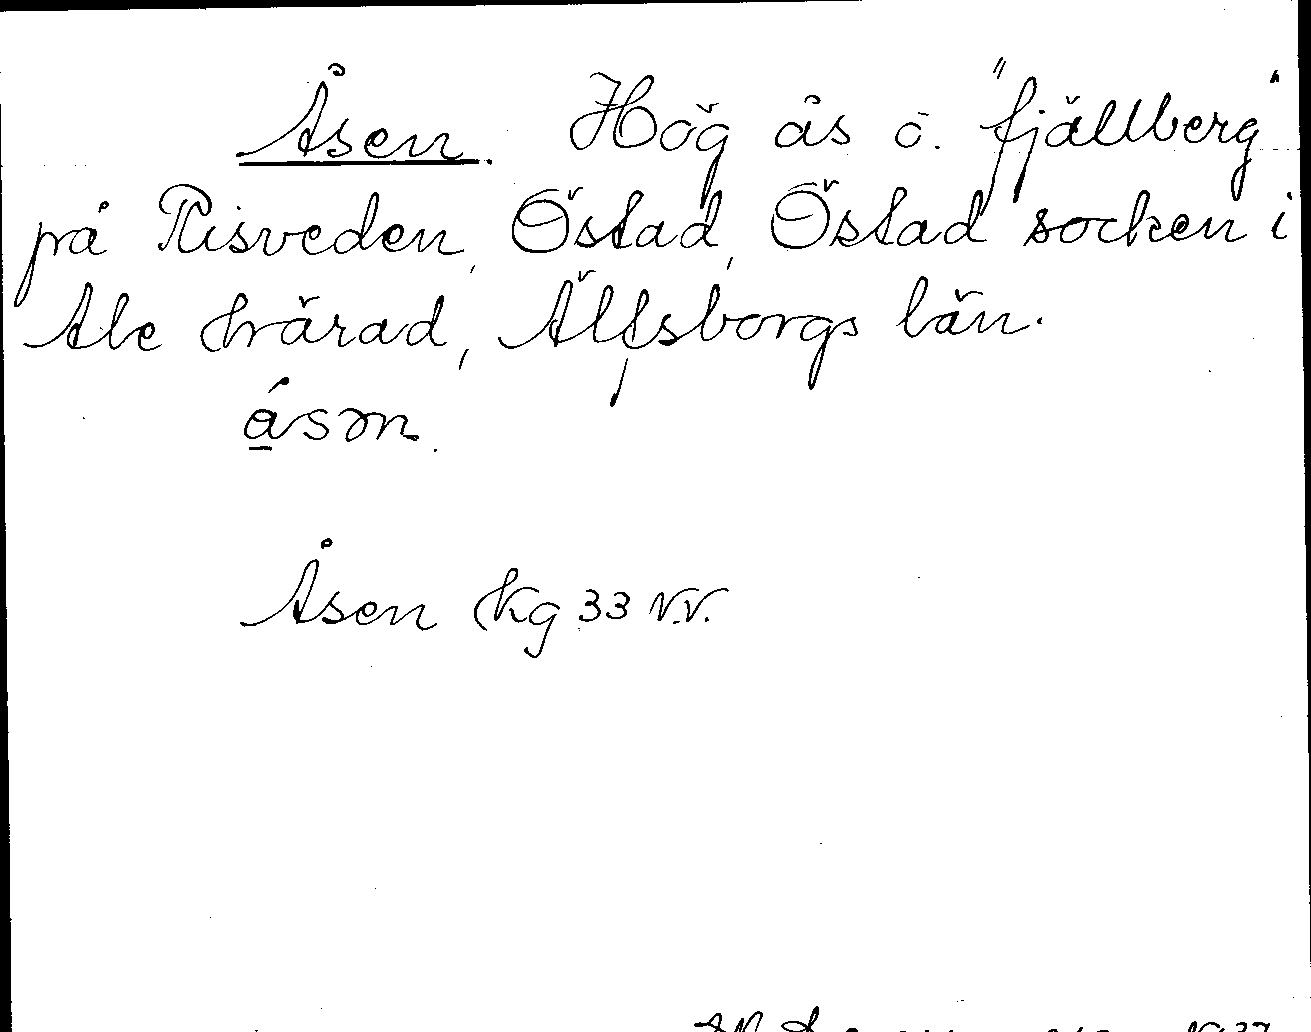 Åsen. Hög ås o. "fjällberg"
på Risveden, Östad, Östad socken i
Ale härad, Älfsborgs län.
ǻ̱sən.
Åsen Kg 33 N.V.